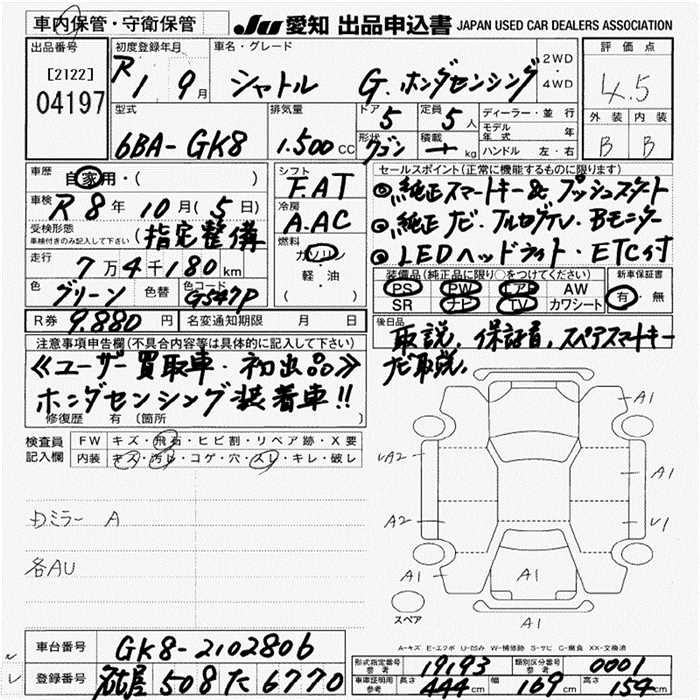 車内保管・守衛保管 JU 愛知 出品申込書 JAPAN USED CAR DEALERS ASSOCIATION
出品番号 初度登録年月 車名・グレード 2WD・4WD 評価点
[2122] R1 9月 シャトル G.ホンダセンシング 4.5
04197
型式 排気量 ドア 定員 ディーラー・並行 外装 内装
6BA-GK8 1.500cc 5 5人 モデル年式 年 B B
形状 積載 ハンドル 左・右
ワゴン kg
車歴 自家用・( ) シフト F.AT セールスポイント(正常に機能するものに限ります)
車検 R8年10月(5日) 冷房 A.AC ◎純正スマートキー&プッシュスタート
受検形態 車検付きのみ記入して下さい (指定整備) 燃料 ガソリン ◎純正ナビ・フルセグTV・Bモニター
走行 7万4千180km 軽・油 ◎LEDヘッドライト・ETC付
( )
色 グリーン 色替 色コード G547P 装備品(純正品に限り○をつけてください) 新車保証書
PS PW エアB AW 有・無
SR ナビ TV カワシート
R券 9.880円 名変通知期限 月 日 後日品
注意事項申告欄(不具合内容等は具体的に記入して下さい) 取説.保証書.スペアスマートキー
《ユーザー買取車・初出品》 ナビ取説.
ホンダセンシング装着車!!
修復歴 有 〔箇所 〕
検査員記入欄 FW キズ・飛石・ヒビ割・リペア跡・X要
内装 キズ・汚レ・コゲ・穴・スレ・キレ・破レ
A1
A2
A1
ミラー A A2 V1
各AU
A1 A1 A1
スペア A1
A-キズ E-エクボ U-凹み W-補修跡 S-サビ C-腐食 XX-交換済
車台番号 GK8-2102806
形式指定番号 参考 19193 類別区分番号 参考 0001
登録番号 名古屋 508 た 6770
車庫証明用 参考 長さ 444cm 幅 169cm 高さ 154cm